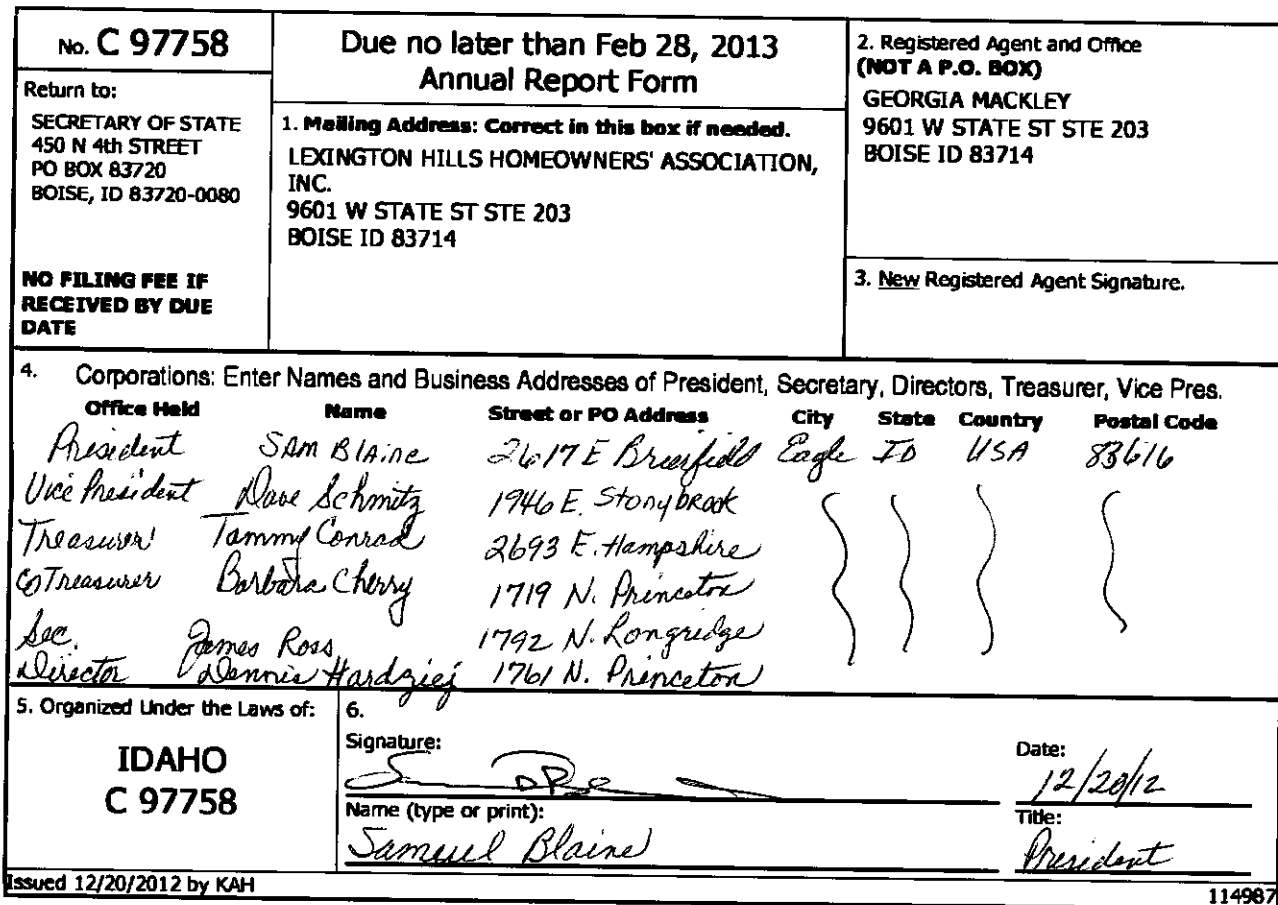 No. C 97758
Return to:
SECRETARY OF STATE
450 N 4th STREET
PO BOX 83720
BOISE, ID 83720-0080
NO FILING FEE IF
RECEIVED BY DUE
DATE
Due no later than Feb 28, 2013
Annual Report Form
1. Mailing Address: Correct in this box if needed.
LEXINGTON HILLS HOMEOWNERS' ASSOCIATION,
INC.
9601 W STATE ST STE 203
BOISE ID 83714
2. Registered Agent and Office
(NOT A P.O. BOX)
GEORGIA MACKLEY
9601 W STATE ST STE 203
BOISE ID 83714
3. New Registered Agent Signature.
4. Corporations: Enter Names and Business Addresses of President, Secretary, Directors, Treasurer, Vice Pres.
Office Held Name Street or PO Address City State Country Postal Code
President SAM BlAine 2617 E Brierfield Eagle ID USA 83616
Vice President Dave Schmitz 1946 E. Stonybrook
Treasurer Tammy Conrad 2693 E. Hampshire
CoTreasurer Barbara Cherry 1719 N. Princeton
Sec. James Ross 1792 N. Longridge
Director Dennis Hardziej 1761 N. Princeton
5. Organized Under the Laws of:
IDAHO
C 97758
6.
Signature:
Date:
12/20/12
Name (type or print):
Samuel Blaine
Title:
President
Issued 12/20/2012 by KAH
114987